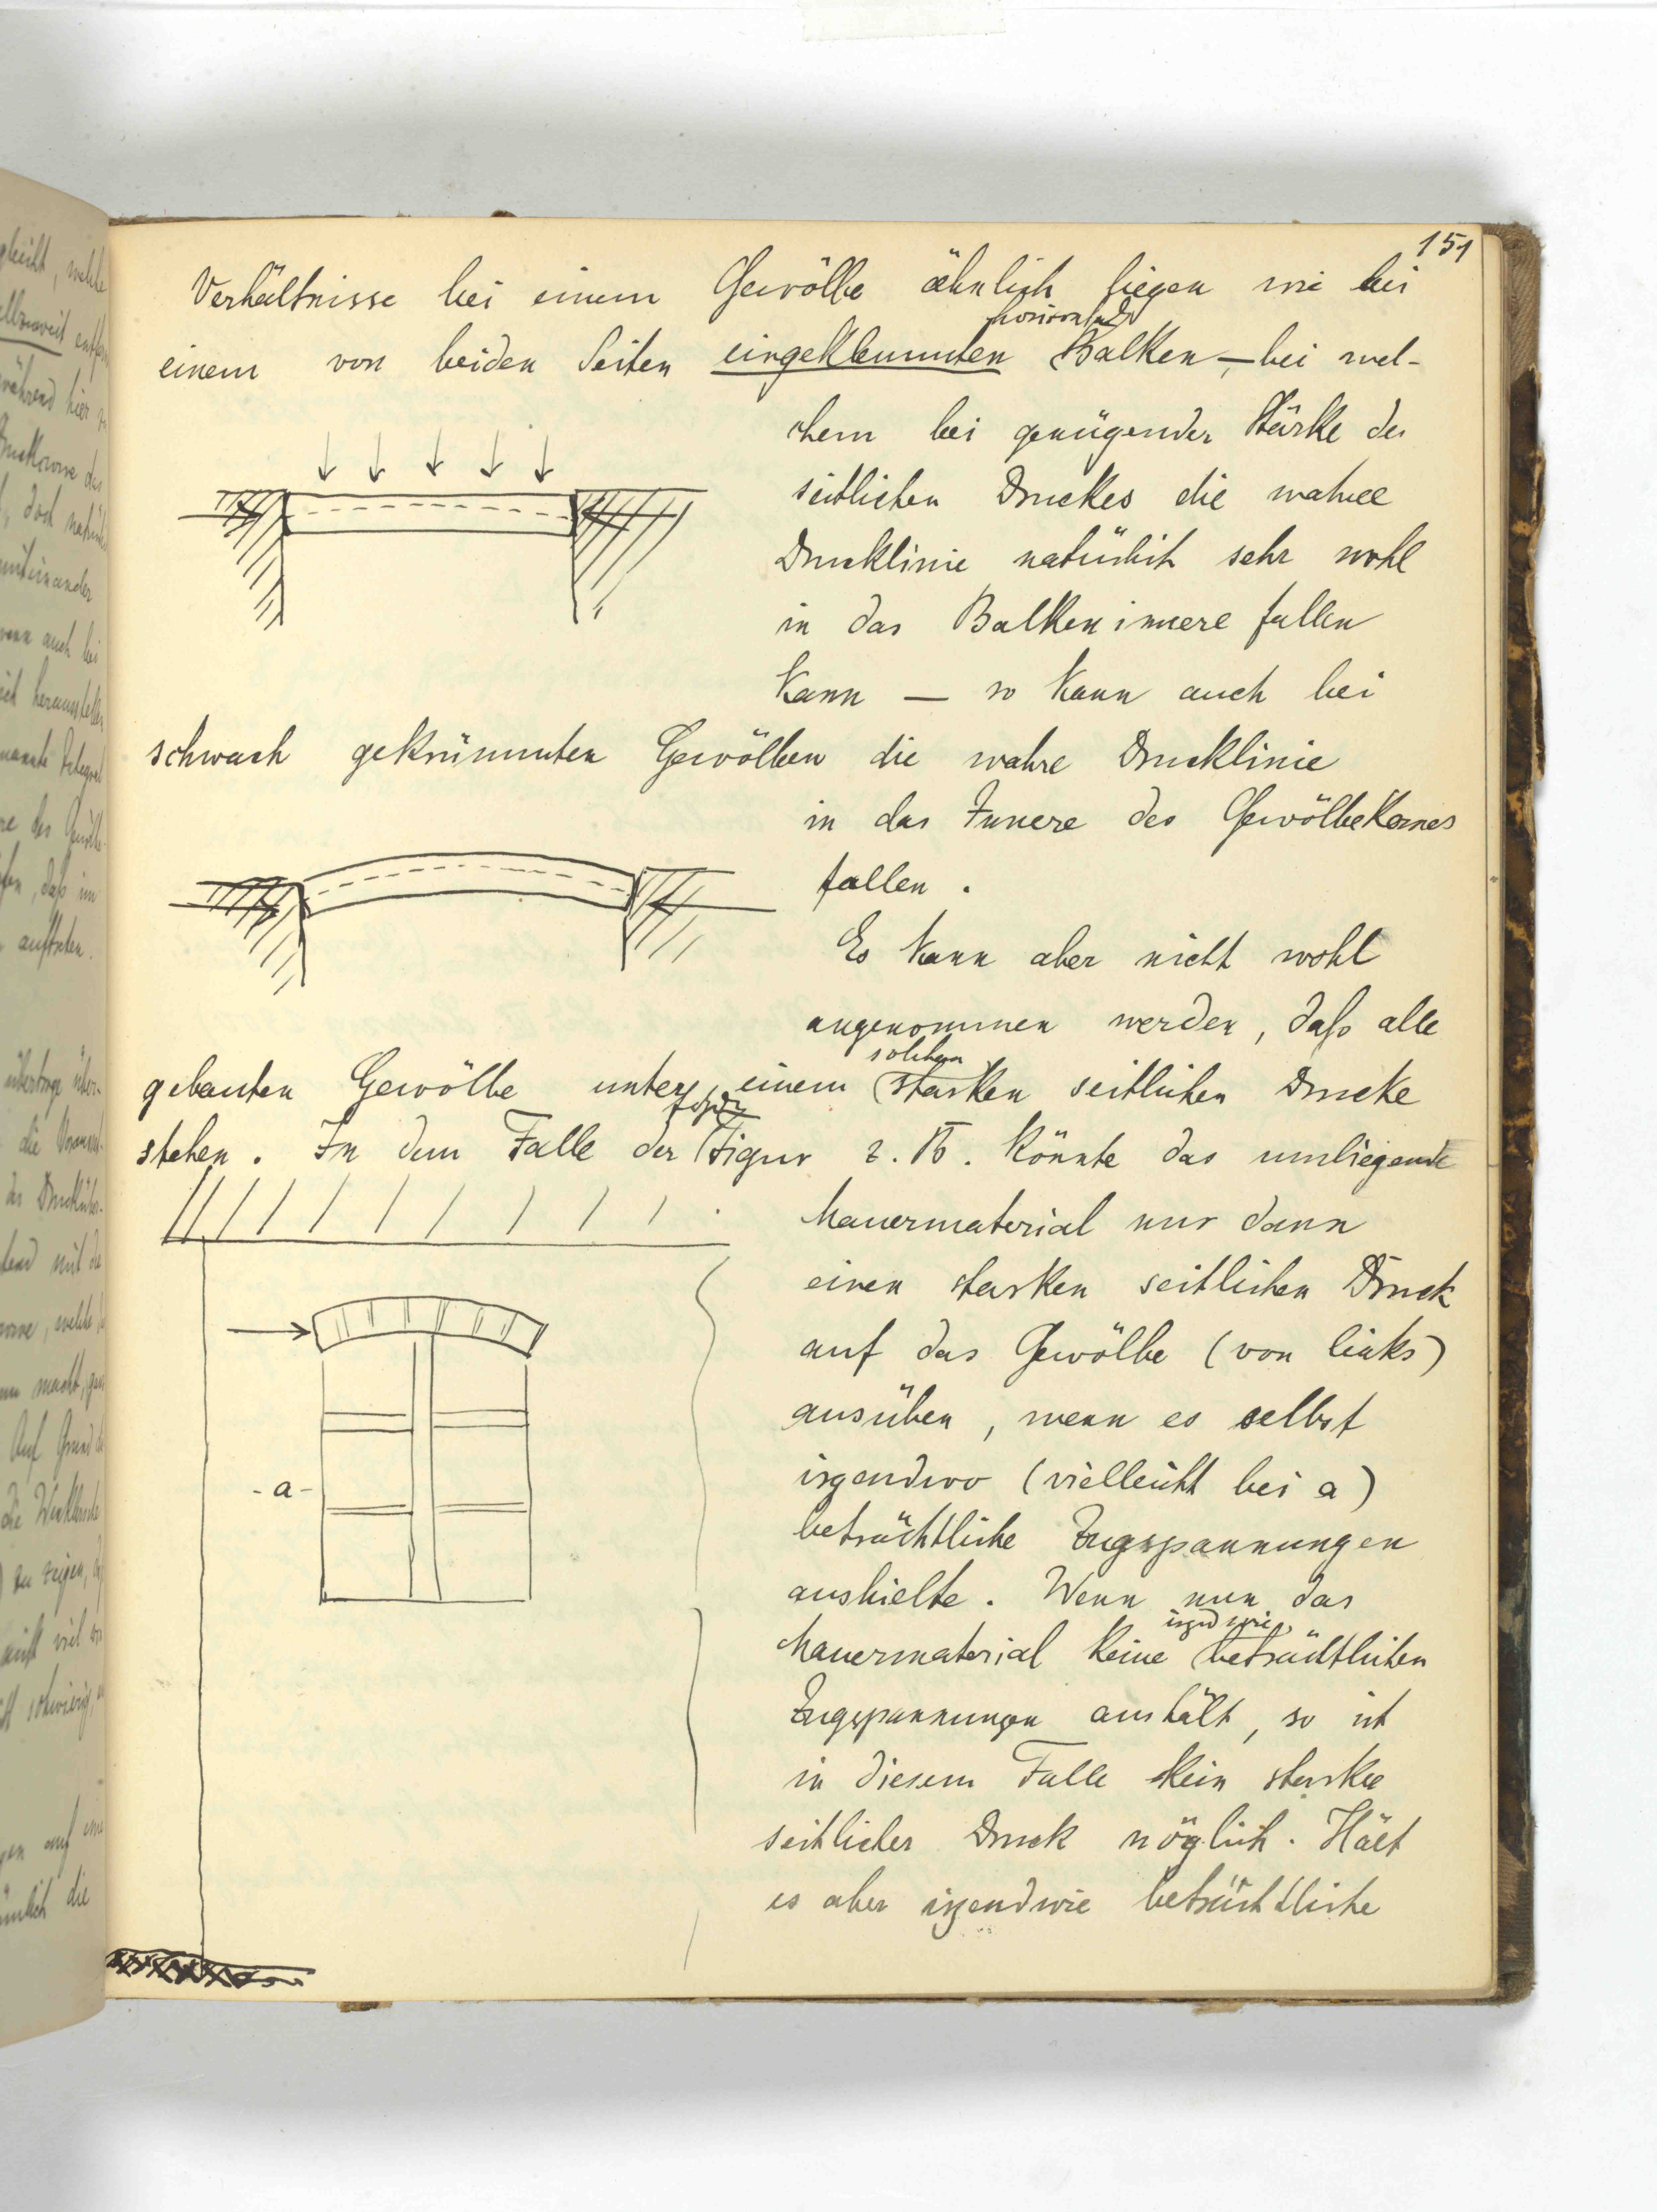 151
Verhältnisse bei einem Gewölbe ähnlich liegen wie bei
horizontalen
einem von beiden Seiten eingeklemmten Balken, – bei wel-
chem bei genügender Stärke des
seitlichen Druckes die wahre
Drucklinie natürlich sehr wohl
in das Balkeninnere fallen
kann — so kann auch bei
schwach gekrümmten Gewölben die wahre Drucklinie
in das Innere des Gewölbekernes
fallen .
Es kann aber nicht wohl
angenommen werden, daß alle
solchen
gebauten Gewölbe unter einem starken seitlichen Drucke
stehen . In dem Falle der Figur z. B. könnte das umliegende
Mauermaterial nur dann
einen starken seitlichen Druck
auf das Gewölbe (von links)
ausüben , wenn es selbst
irgendwo (vielleicht bei a)
- a -
beträchtliche Zugspannungen
aushielte . Wenn nun das
irgendwie
Mauermaterial keine beträchtlichen
Zugspannungen aushält , so ist
in diesem Falle kein starker
seitlicher Druck möglich . Hält
es aber irgendwie beträchtliche